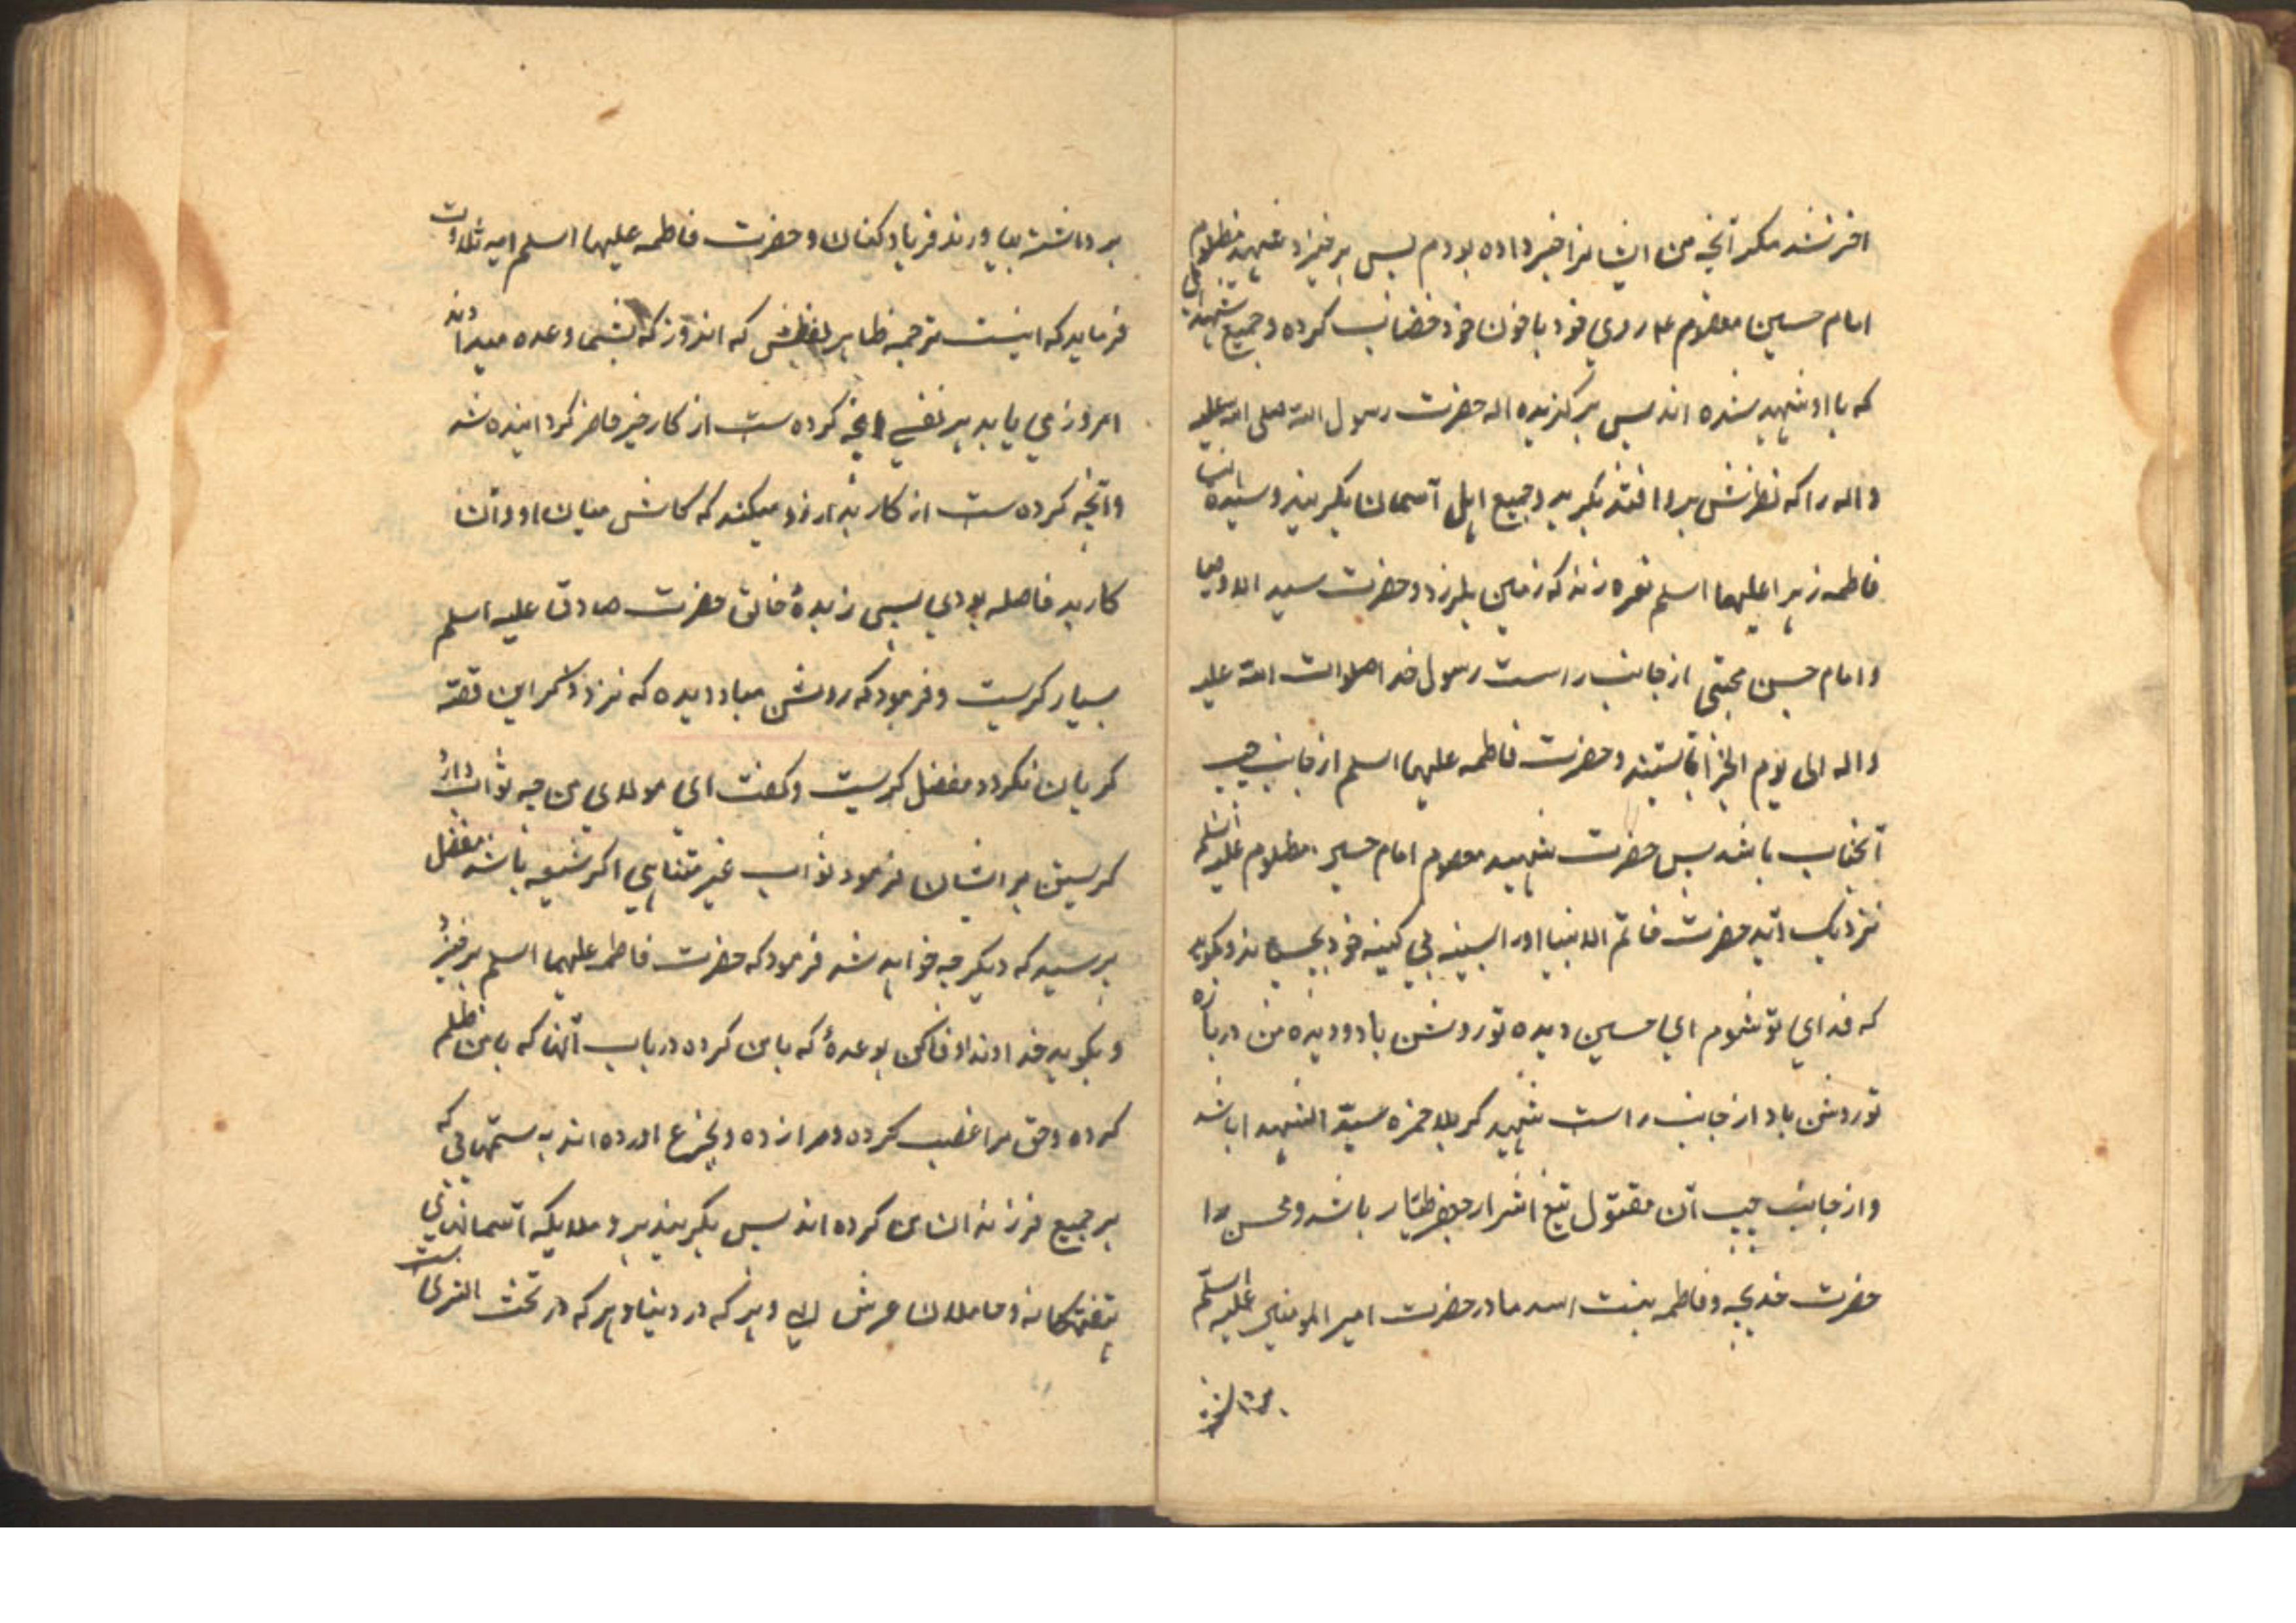 اخر نشد مکر آنچه من ایشانرا خبر داده بودم پس برخیزد شهید مظلوم
امام حسین معصوم روی خود با خون خود خضاب کرده و جمیع شهدای
که با او شهید شده اند پس برکزیده اله حضرت رسول الله صلی الله علیه
واله را که نظرش برو افتد بکرید و جمیع اهل آسمان بکریند و سیده النسا
فاطمه زهرا علیها اسلم نعره زند که زمین بلرزد و حضرت سید الاوصیا
و امام حسن مجتبی از جانب راست رسول خدا صلوات الله علیه
واله الی یوم الجزا بایستند و حضرت فاطمه علیها اسلم از جانب چپ
آنجناب باشد پس حضرت شهید معصوم امام حسین مظلوم علیه اسلم
نزدیک آید حضرت خاتم الانبیا او را بسینه بی کینه خود بچسباند و بکوید
که فدای تو شوم ای حسین دیده تو روشن باد و دیده من درباره
تو روشن باد از جانب راست شهید کربلا حمزه سید الشهدا باشد
و از جانب چپ آن مقتول تیغ اشرار جعفر طیار باشد و محسن را
حضرت خدیجه و فاطمه بنت اسد مادر حضرت امیر المومنین علیه اسلم
برداشته بیاورند فریاد کنان و حضرت فاطمه علیها اسلم ایه تلاوت
فرماید که اینست ترجمه ظاهر لفظش که اندروز که بشما وعده میدادند
امروز می یابد هر نفسی انچه کرده ست از کار خیر حاضر کردانیده شد
و آنچه کرده ست از کار بد ارزو میکند که کاش میان او و آن
کار بد فاصله بودی پس زبدهٔ خالق حضرت صادق علیه اسلم
بسیار کریست و فرمود که روشن مباد دیده که نزد ذکر این قصه
کریان نکردد مفضل کریست و کفت ای مولای من چه ثواب دارد
کریستن بر ایشان فرمود ثواب غیر متناهی اکر شیعه باشد مفضل
پرسید که دیکر چه خواهد شد فرمود که حضرت فاطمه علیها اسلم برخیزد
و بکوید خداوندا وفا کن بوعدهٔ که بامن کرده در باب آنها که بامن ظلم
کرده و حق مرا غصب کرده و مرا زده و بجزع اورده اند به ستمهایی که
بر جمیع فرزندان من کرده اند پس بکریند برو ملایکه آسمانهای
هفتکانه و حاملان عرش الهی و هر که در دنیا و هر که در تحت الثری است